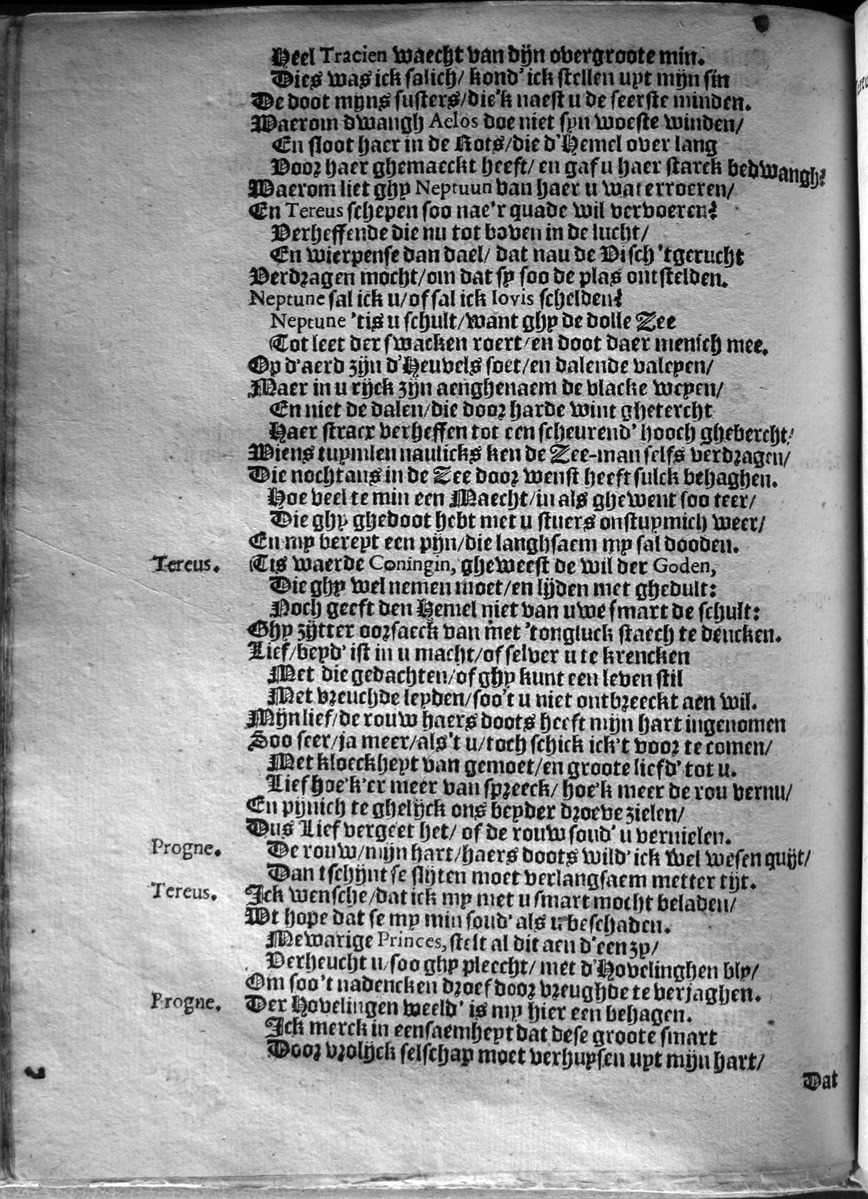 Heel Tracien waecht van dijn overgroote min.
Dies was ick salich/ kond' ick stellen uyt mijn sin
De doot mijns susters/die'k naest u de seerste minden.
Waerom dwangh Aelos doe niet syn woeste winden/
En sloot haer in de Rots/die d'Hemel over lang
Voor haer ghemaeckt heeft/ en gaf u haer starck bedwangh?
Waerom liet ghy Neptuun van haer u waterroeren/
En Tereus schepen soo nae'r quade wil vervoeren?
Verheffende die nu tot boven in de lucht/
En wierpense dan dael/ dat nau de Visch 'tgerucht
Verdragen mocht/om dat sy soo de plas ontstelden.
Neptune sal ick u/of sal ick Iovis schelden?
Neptune 'tis u schult/want ghy de dolle Zee
Tot leet der swacken roert/en doot daer mensch mee.
Op d'aerd zijn d'Heuvels soet/en dalende valeyen/
Maer in u rijck zijn aenghenaem de vlacke weyen/
En niet de dalen/die door harde wint ghetercht
Haer stracx verheffen tot een scheurend' hooch ghebercht/
Wiens tuymlen naulicks ken de Zee-man selfs verdragen/
Die nochtans in de Zee door wenst heeft sulck behaghen.
Hoe veel te min een Maecht/in als ghewent soo teer/
Die ghy ghedoot hebt met u stuers onstuymich weer/
En my bereyt een pijn/die langhsaem my sal dooden.
Tereus. Tis waerde Coningin, gheweest de wil der Goden,
Die ghy wel nemen moet/en lijden met ghedult:
Noch geeft den Hemel niet van uwe smart de schult:
Ghy zijtter oorsaeck van met 'tongluck staech te dencken.
Lief/beyd' ist in u macht/of selver u te krencken
Met die gedachten/of ghy kunt een leven stil
Met vreuchde leyden/soo't u niet ontbreeckt aen wil.
Mijn lief/de rouw haers doots heeft mijn hart ingenomen
Soo seer/ja meer/als't u/toch schick ick't voor te comen/
Met kloeckheyt van gemoet/en groote liefd' tot u.
Lief hoe'k'er meer van spreeck/ hoe'k meer de rou vernu/
En pijnich te ghelijck ons beyder droeve zielen/
Dus Lief vergeet het/ of de rouw soud' u vernielen.
Progne. De rouw/mijn hart/haers doots wild' ick wel wesen quijt/
Dan tschijnt se slijten moet verlangsaem metter tijt.
Tereus. Ick wensche/dat ick my met u smart mocht beladen/
Wt hope dat se my min soud' als u beschaden.
Mewarige Princes, stelt al dit aen d'een zy/
Verheucht u/soo ghy pleecht/ met d'Hovelinghen bly/
Om soo't nadencken droef door vreughde te verjaghen.
Progne. Der Hovelingen weeld' is my hier een behagen.
Ick merck in eensaemheyt dat dese groote smart
Door vrolijck selschap moet verhuysen uyt mijn hart/
Dat